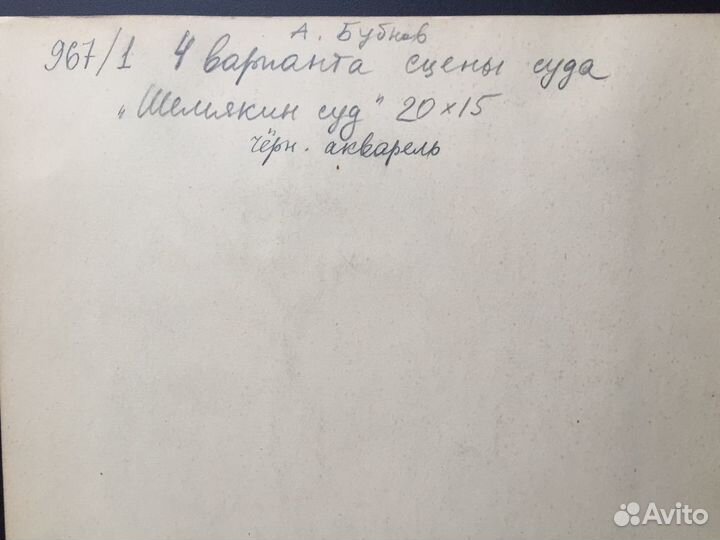 А. Бубнов
967/1 4 варианта сцены суда
„Шемякин суд" 20×15
чёрн. акварель
Avito